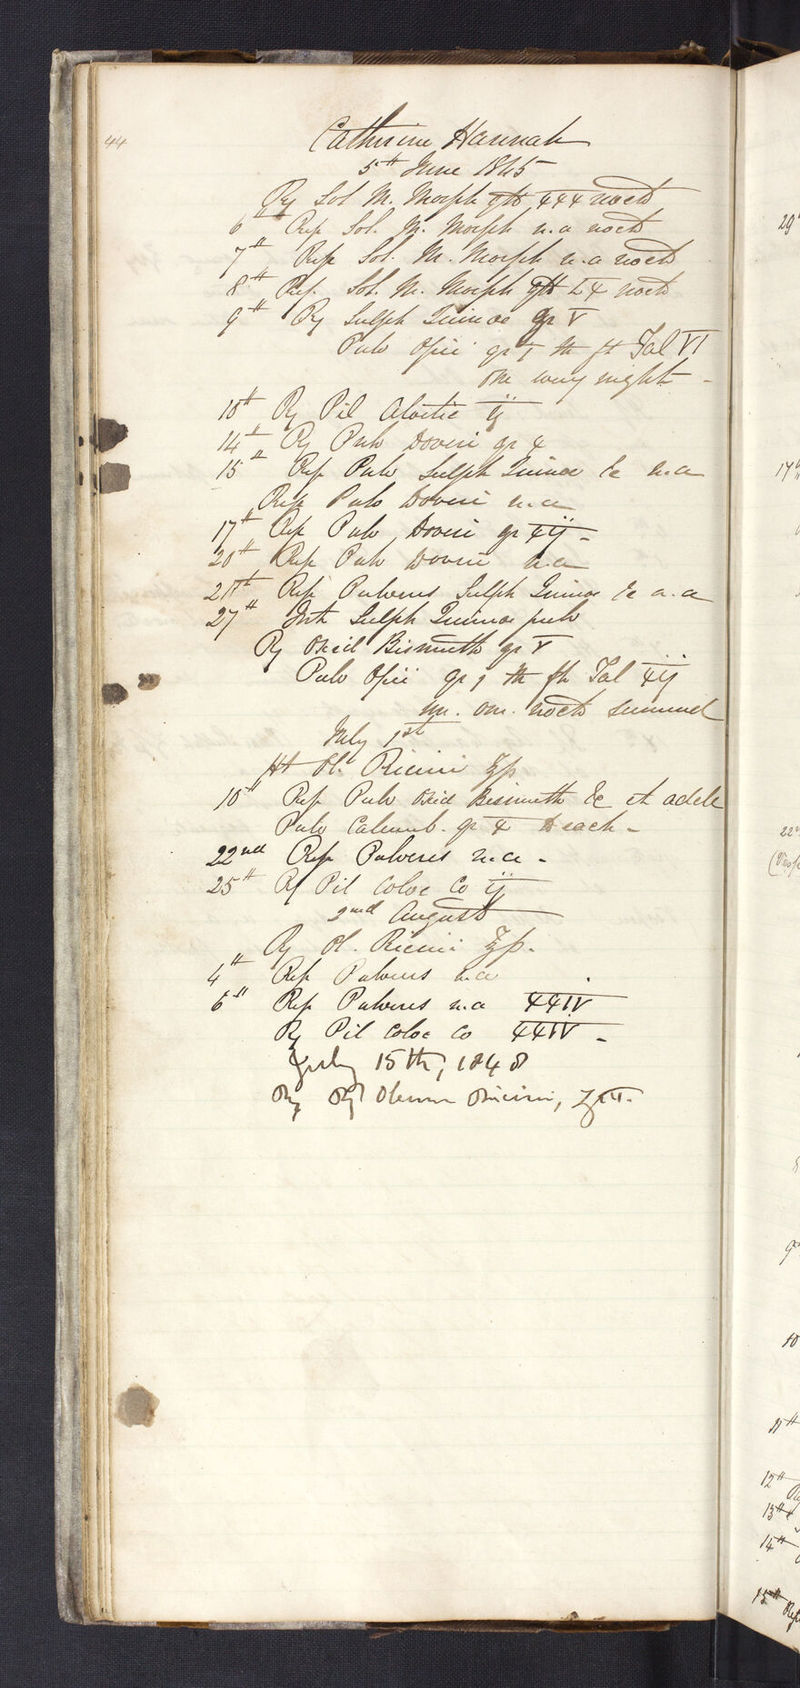 44
Catherine Hannah
5th June 1845
Rx Sol M. Morph gtt xxx nocte
6th Rep Sol. M. Morph u.a nocte
7th Rep Sol. M. Morph u.a nocte
8th Rep. Sol. M. Morph gtt Lx nocte
9th Rx Sulph Quinae gr V
Pulv Opii gr j M ft Tal VI
one every night -
10th Rx Pil Aloetic ij
14th Rx Pulv Doveri gr x
15th Rep Pulv Sulph Quinae &c u.a
Rep Pulv Doveri u.a
17th Rep Pulv Doveri gr xij -
20th Rep Pulv Doveri u.a
21st Rep Pulveres Sulph Quinae &c u.a
27th Int Sulph Quinae pulv
Rx Oxid Bismuth gr V
Pulv Opii gr j M ft Tal xij
om. nocte sumend
July 1st
Ht Ol. Ricini
10th Rep Pulv Oxid Bismuth &c et adde
Pulv Calumb. gr x each -
22nd Rep Pulveres u.a -
25th Rx Pil Coloc Co ij
2nd August
Rx Ol. Ricini
4th Rep Pulveres u.a
6th Rep Pulveres u.a XXIV
Rx Pil Coloc Co XXIV -
July 15th, 1848
Oleum Ricini,
29
17
22
9
10
11th
12th
13th
14th
15th Rep